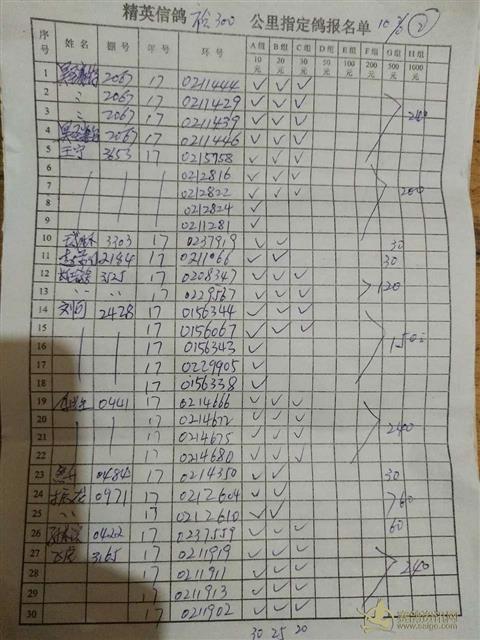 精英信鸽 300 公里指定鸽报名单 ②
序号 姓名 棚号 年号 环号 A组10元 B组20元 C组30元 D组50元 E组100元 F组200元 G组500元 H组1000元
1 2067 17 0211444 ✓ ✓ ✓
2 〃 2067 17 0211429 ✓ ✓ ✓
3 〃 2067 17 0211439 ✓ ✓ ✓ 240
4 2067 17 0211446 ✓ ✓ ✓
5 王宁 3653 17 0215758 ✓ ✓ ✓
6 0212816 ✓ ✓ ✓
7 0212822 ✓ ✓ ✓ 200
8 0212824 ✓
9 0211281 ✓
10 3303 17 0237919 ✓ ✓ 30
11 2144 17 0211066 ✓ ✓ 30
12 3525 17 0208347 ✓ ✓ ✓ 120
13 〃 〃 17 0229567 ✓ ✓ ✓
14 刘 2428 17 0156344 ✓ ✓ ✓
15 17 0156067 ✓ ✓ ✓
16 17 0156343 ✓ 150
17 17 0229905 ✓
18 17 0156338 ✓
19 0441 17 0214666 ✓ ✓ ✓
20 0214672 ✓ ✓ ✓
21 0214675 ✓ ✓ ✓ 240
22 17 0214680 ✓ ✓ ✓
23 0484 17 0214350 ✓ ✓ 30
24 0971 17 0212604 ✓ ✓ 60
25 〃 17 0212610 ✓ ✓
26 0422 17 0237559 ✓ ✓ ✓ 60
27 3165 17 0211919 ✓ ✓ ✓
28 17 0211911 ✓ ✓ ✓ 240
29 17 0211913 ✓ ✓ ✓
30 17 0211902 ✓ ✓ ✓
30 25 20
www.saige.com